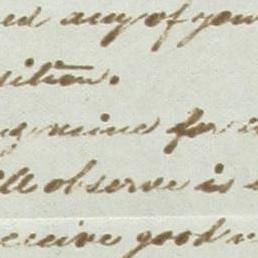 ed any of you
sition.
mine for
ll observe is
receive good